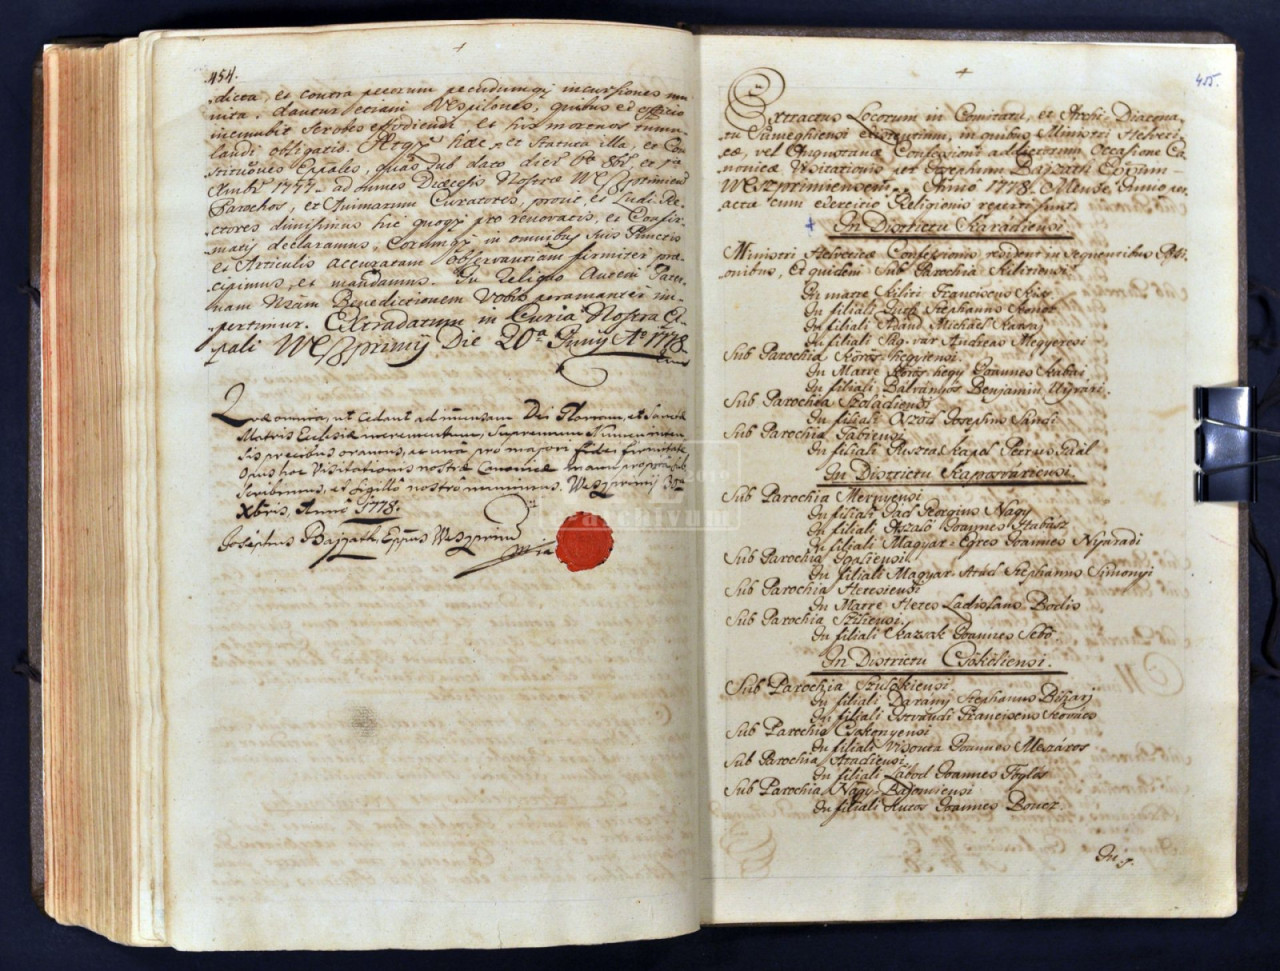 454.
dicta, et contra pecorum pecudumqz incursiones mu-
nita. dantur etiam Vespilones, quibus ex officio
incumbit Scrobes effodiendi, et his mortuos tumu-
landi obligatio. Atqz hæc, et Statuta illa, et Con-
stitutiones Eppales, quas sub dato diei 6ta 8bris et 1ma
Xmbris 1757. ad omnes Diæcesis Nostræ Weszprimiens
Parochos, et Animarum Curatores, prout, et Ludi Re-
ctores dimisimus hic quoqz pro renovatis, et Confir-
matis declaramus, Eorumqz in omnibus suis Punctis
et Articulis accuratam observantiam firmiter præ-
cipimus, et mandamus. In reliquo Averni Pater-
nam Nram Benedictionem Vobis peramanter im-
pertimur. Extradatum in Curia Nostra E-
ppali Weszprimij Die 20a Junij Ao 1778.
Quæ omnia, ut cedant ad immensam Dei Gloriam, et Sanctæ
Matris Ecclesiæ incrementum, Supremum Numen inten-
sis precibus oramus, ac una pro majori fidei firmitate
Opus hoc Visitationis nostræ Canonicæ manu propria sub-
scribimus, et sigillo nostro munimus. Weszprimij
Xbris Anno 1778.
Josephus Bajzath Eppus Weszprim
mpia
455.
Extractus Locorum in Comitatu, et Archi-Diacona-
tu Sümeghiensi existentium, in quibus Ministri Helveti-
cæ, vel Augustanæ Confessioni addictorum Occasione Ca-
nonicæ Visitationis per Josephum Bajzath Eppum
Weszprimiensem Anno 1778. Mense Junio per-
actæ cum exercitio Religionis reperti sunt.
+ In Districtu Karadiensi.
Ministri Helveticæ Confessionis resident in sequentibus Poss-
ionibus, Et quidem Sub Parochia Kilitiensi
In matre Kiliti Franciscus Kis
In filiali Lulla Stephanus Kenot
In filiali Adánd Michael Kavaj
In filiali Ság-vár Andreas Megyeresi
Sub Parochia Körös-hegyiensi.
In Matre Körös-hegy Joannes Kabai
In filiali Bálványos Benjamin Ujvári.
Sub Parochia Szoládiensi
In filiali Oszöd Josephus Sándi
Sub Parochia Tabiensi
In filiali Puszta-Kapol Petrus Gaál
In Districtu Kaposváriensi.
Sub Parochia Mernyensi
In filiali Gad Georgius Nagy
In filiali Aszaló Joannes Szabász
In filiali Magyar-Egres Joannes Nyáradi
Sub Parochia Igaliensi.
In filiali Magyar-Atád Stephanus Simonyi
Sub Parochia Hetesiensi
In Matre Hetes Ladislaus Bodis
Sub Parochia Sziliensi.
In filiali Kazsok Joannes Sebő
In Districtu Csököliensi.
Sub Parochia Szulokiensi
In filiali Darány Stephanus Bihari
In filiali Istvándi Franciscus Kovács
Sub Parochia Csokonyensi
In filiali Visonta Joannes Mészáros
Sub Parochia Atadiensi.
In filiali Lábod Joannes Foglár
Sub Parochia Nagy-Bajomiensi
In filiali Kutas Joannes Boner
In
archivum